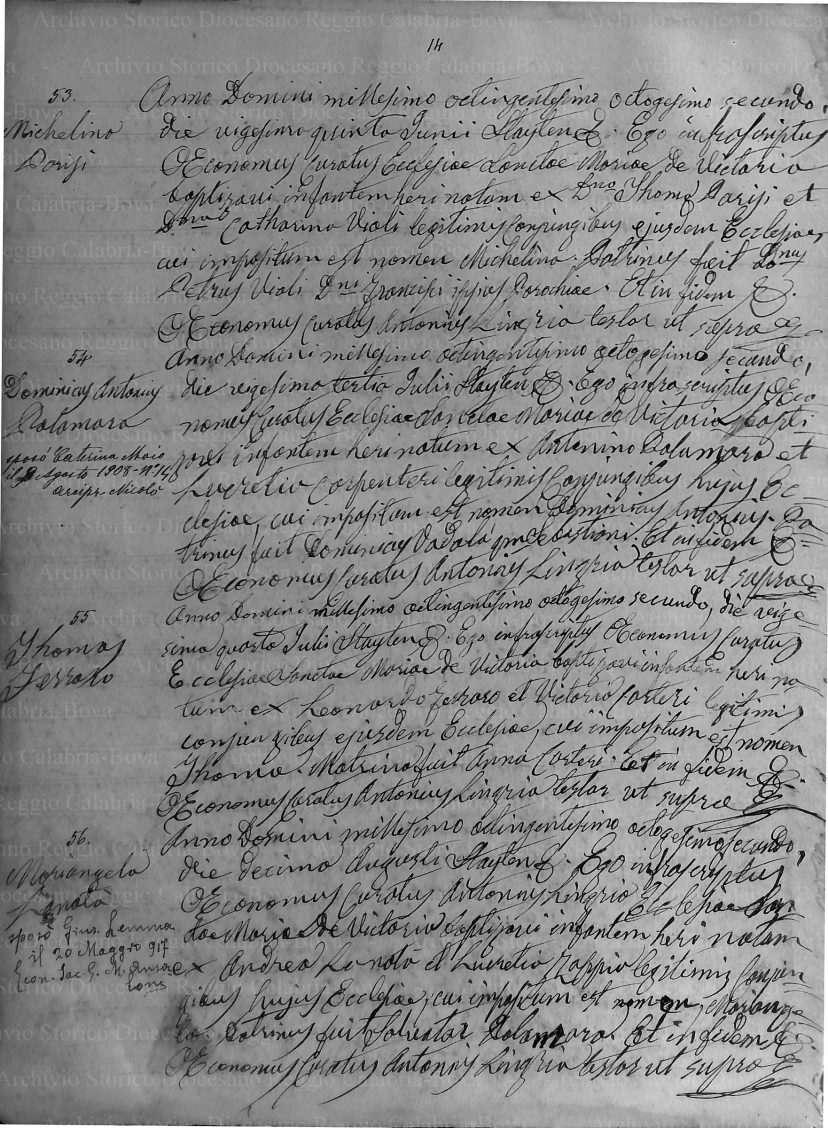 14
53.
Michelina
Parisi
Anno Domini millesimo octingentesimo octogesimo secundo,
die vigesimo quinto Junii Stayten &. Ego infrascriptus
Œconomus Curatus Ecclesiae Sanctae Mariae de Victoria
baptizavi infantem heri natam ex Dno Thoma Parisi et
Dna Catharina Violi legitimis conjungibus ejusdem Ecclesiae,
cui impositum est nomen Michelina. Patrinus fuit Dnus
Petrus Violi Dni Francisci ipsius Parochiae. Et in fidem &.
Œconomus Curatus Antonius Lingria testor ut supra
54
Dominicus Antonius
Palamara
sposò Caterina Maio
il Agosto 1908 - N. 14
arcipr. Nicolò
Anno Domini millesimo octingentesimo octogesimo secundo,
die vigesima tertia Julii Stayten &. Ego infrascriptus Œco
nomus Curatus Ecclesiae Sanctae Mariae de Victoria bapti
zavi infantem heri natum ex Antonino Palamara et
Lucretia Carpenteri legitimis Conjungibus hujus Ec
clesiae, cui impositum est nomen Dominicus Antonius. Pa
trinus fuit Dominicus Vadalà. Et in fidem &
Œconomus Curatus Antonius Lingria testor ut supra
55
Thomas
Ferraro
Anno Domini millesimo octingentesimo octogesimo secundo, die vige
sima quarta Julii Stayten &. Ego infrascriptus Œconomus Curatus
Ecclesiae Sanctae Mariae de Victoria baptizavi infantem heri na
tum ex Leonardo Ferraro et Victoria Corteri legitimis
conjungibus ejusdem Ecclesiae, cui impositum est nomen
Thoma. Matrina fuit Anna Corteri. Et in fidem &.
Œconomus Curatus Antonius Lingria testor ut supra
56.
Mariangela
Zanotà
sposò Gius. Lemma
il 20 Maggio 917
Econ. Sac. G. M.
Anno Domini millesimo octingentesimo octogesimo secundo,
die decima Augusti Stayten &. Ego infrascriptus
Œconomus Curatus Antonius Lingria Ecclesiae San
ctae Mariae de Victoria baptizavi infantem heri natam
ex Andrea et Lucretia Zappia legitimis Conjun
gibus hujus Ecclesiae, cui impositum est nomen Mariange
la. Patrinus fuit Salvator Palamara. Et in fidem &
Œconomus Curatus Antonius Lingria testor ut supra
Archivio Storico Diocesano Reggio Calabria-Bova